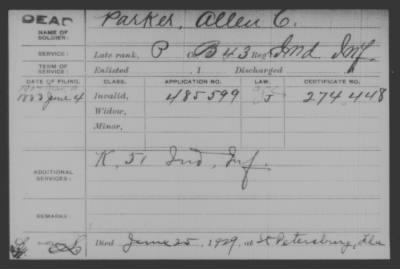 DEAD
NAME OF SOLDIER: Parker, Allen C.
SERVICE: Late rank, P Co. B 43 Reg't Ind. Inf.
TERM OF SERVICE: Enlisted , 1 Discharged
DATE OF FILING. CLASS. APPLICATION NO. LAW. CERTIFICATE NO.
1883 June 4 Invalid, 485599 274448
Widow,
Minor,
ADDITIONAL SERVICES: K, 51 Ind. Inf.
REMARKS:
Died June 25, 1929, at St Petersburg, Fla